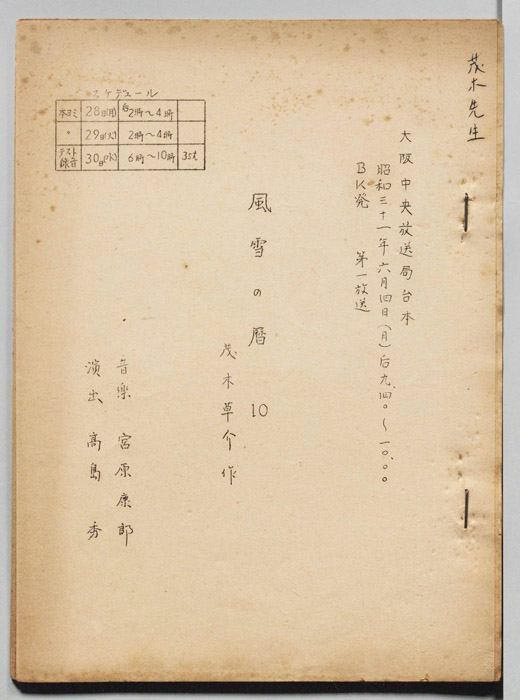 茂木先生
大阪中央放送局台本
昭和三十一年六月四日(月)后九.四〇~一〇.〇〇
BK発 第一放送
風雪の暦 10
茂木草介作
音楽 宮原康郎
演出 高島秀
スケデュール
本ヨミ 28日(月) 2時~4時
〃 29日(火) 2時~4時
テスト録音 30日(水) 6時~10時